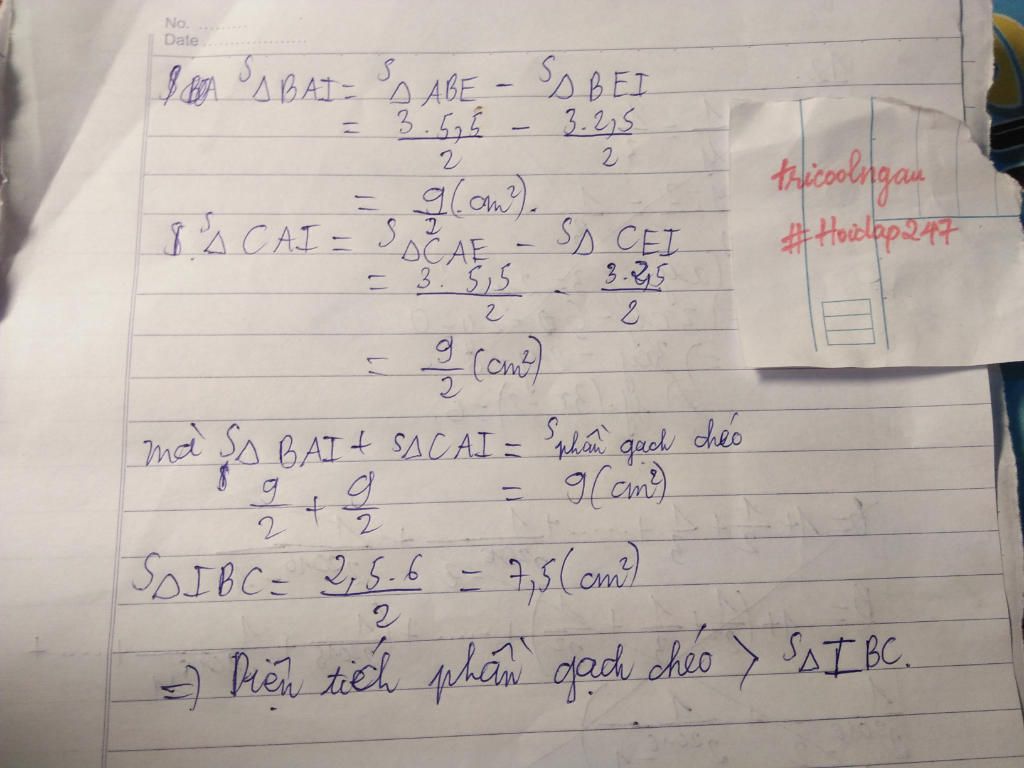 No. ..........
Date ....................
S△BAI = S△ABE - S△BEI
= 3.5,5/2 - 3.2,5/2
= 9/2 (cm²).
S△CAI = S△CAE - S△CEI
= 3.5,5/2 - 3.2,5/2
= 9/2 (cm²)
mà S△BAI + S△CAI = S phần gạch chéo
9/2 + 9/2 = 9(cm²)
S△IBC = 2,5.6/2 = 7,5(cm²)
=) Diện tiéh phần gạch chéo > S△IBC.
tricoolngau
#Hoidap247